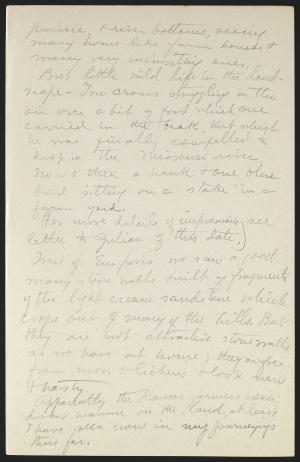 prairie, & river bottoms, seeing
many home-like farm houses &
many very uninviting ones.
But little wild life in the land-
scape - Two crows struggling in the
air over a bit of food which one
carried in the beak, but which
he was finally compelled to
drop in the Missouri river.
Now & then a hawk & one blue
bird sitting on a stake in a
farm yard.
(For more details of impressions, see
letter to Julian of this date.)
West of Emporia we saw a good
many stone walls built of fragments
of the light cream sandstone which
crops out of many of the hills. But
they are not attractive stone walls
as we have at home; they are free
from moss & lichens & look new
& nasty.
Apparently the Kansas farmers never
draw manure on the land, at least
I have seen none in my journeyings
thus far.